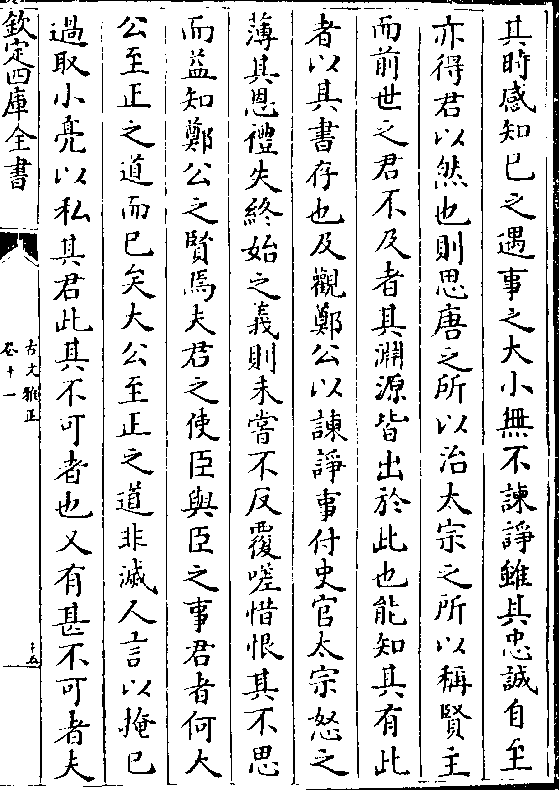 其時感知已之遇事之大小無不諫諍雖其忠誠自至
亦得君以然也則思唐之所以治太宗之所以稱賢主
而前世之君不及者其淵源皆出於此也能知其有此
者以其書存也及觀鄭公以諫諍事付史官太宗怒之
薄其恩禮失終始之義則未嘗不反覆嗟惜恨其不思
而益知鄭公之賢焉夫君之使臣與臣之事君者何大
公至正之道而已矣大公至正之道非滅人言以掩已
過取小亮以私其君此其不可者也又有甚不可者夫
欽定四庫全書
古文雅正
卷十一
十五